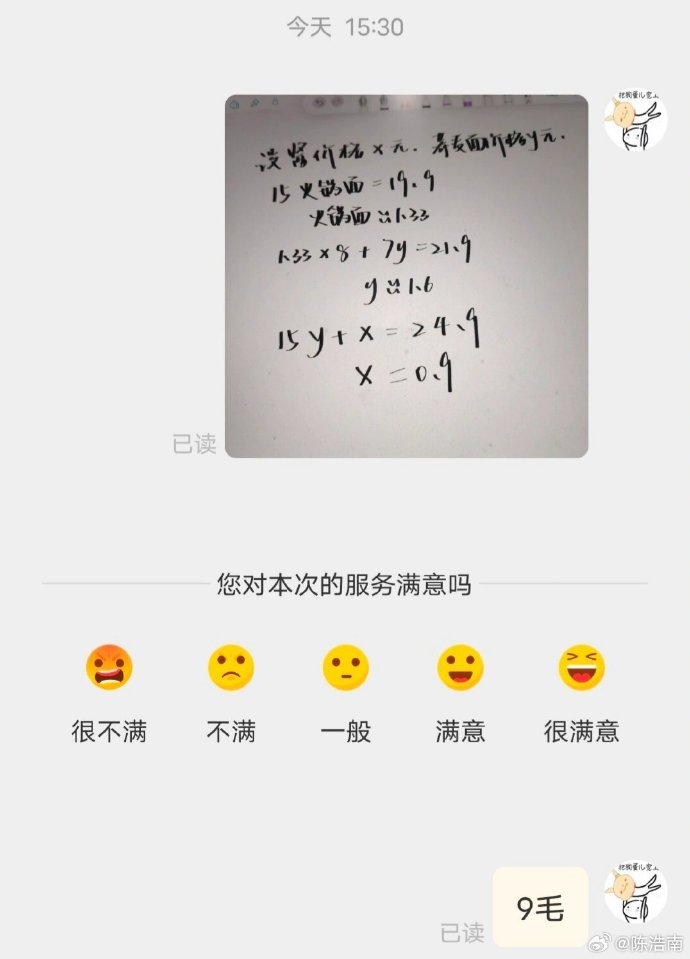 今天 15:30
把狗蛋儿宠上
设酱价格x元. 荞麦面价格y元.
15火锅面=19.9
火锅面≈1.33
1.33×8+7y=21.9
y≈1.6
15y+x=24.9
x=0.9
已读
您对本次的服务满意吗
很不满 不满 一般 满意 很满意
9毛
已读
@陈浩南